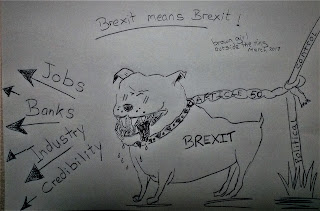 Brexit means Brexit !
outside the ring
Jobs
Banks
Industry
Credibility
ARTICLE 50
BREXIT
Political